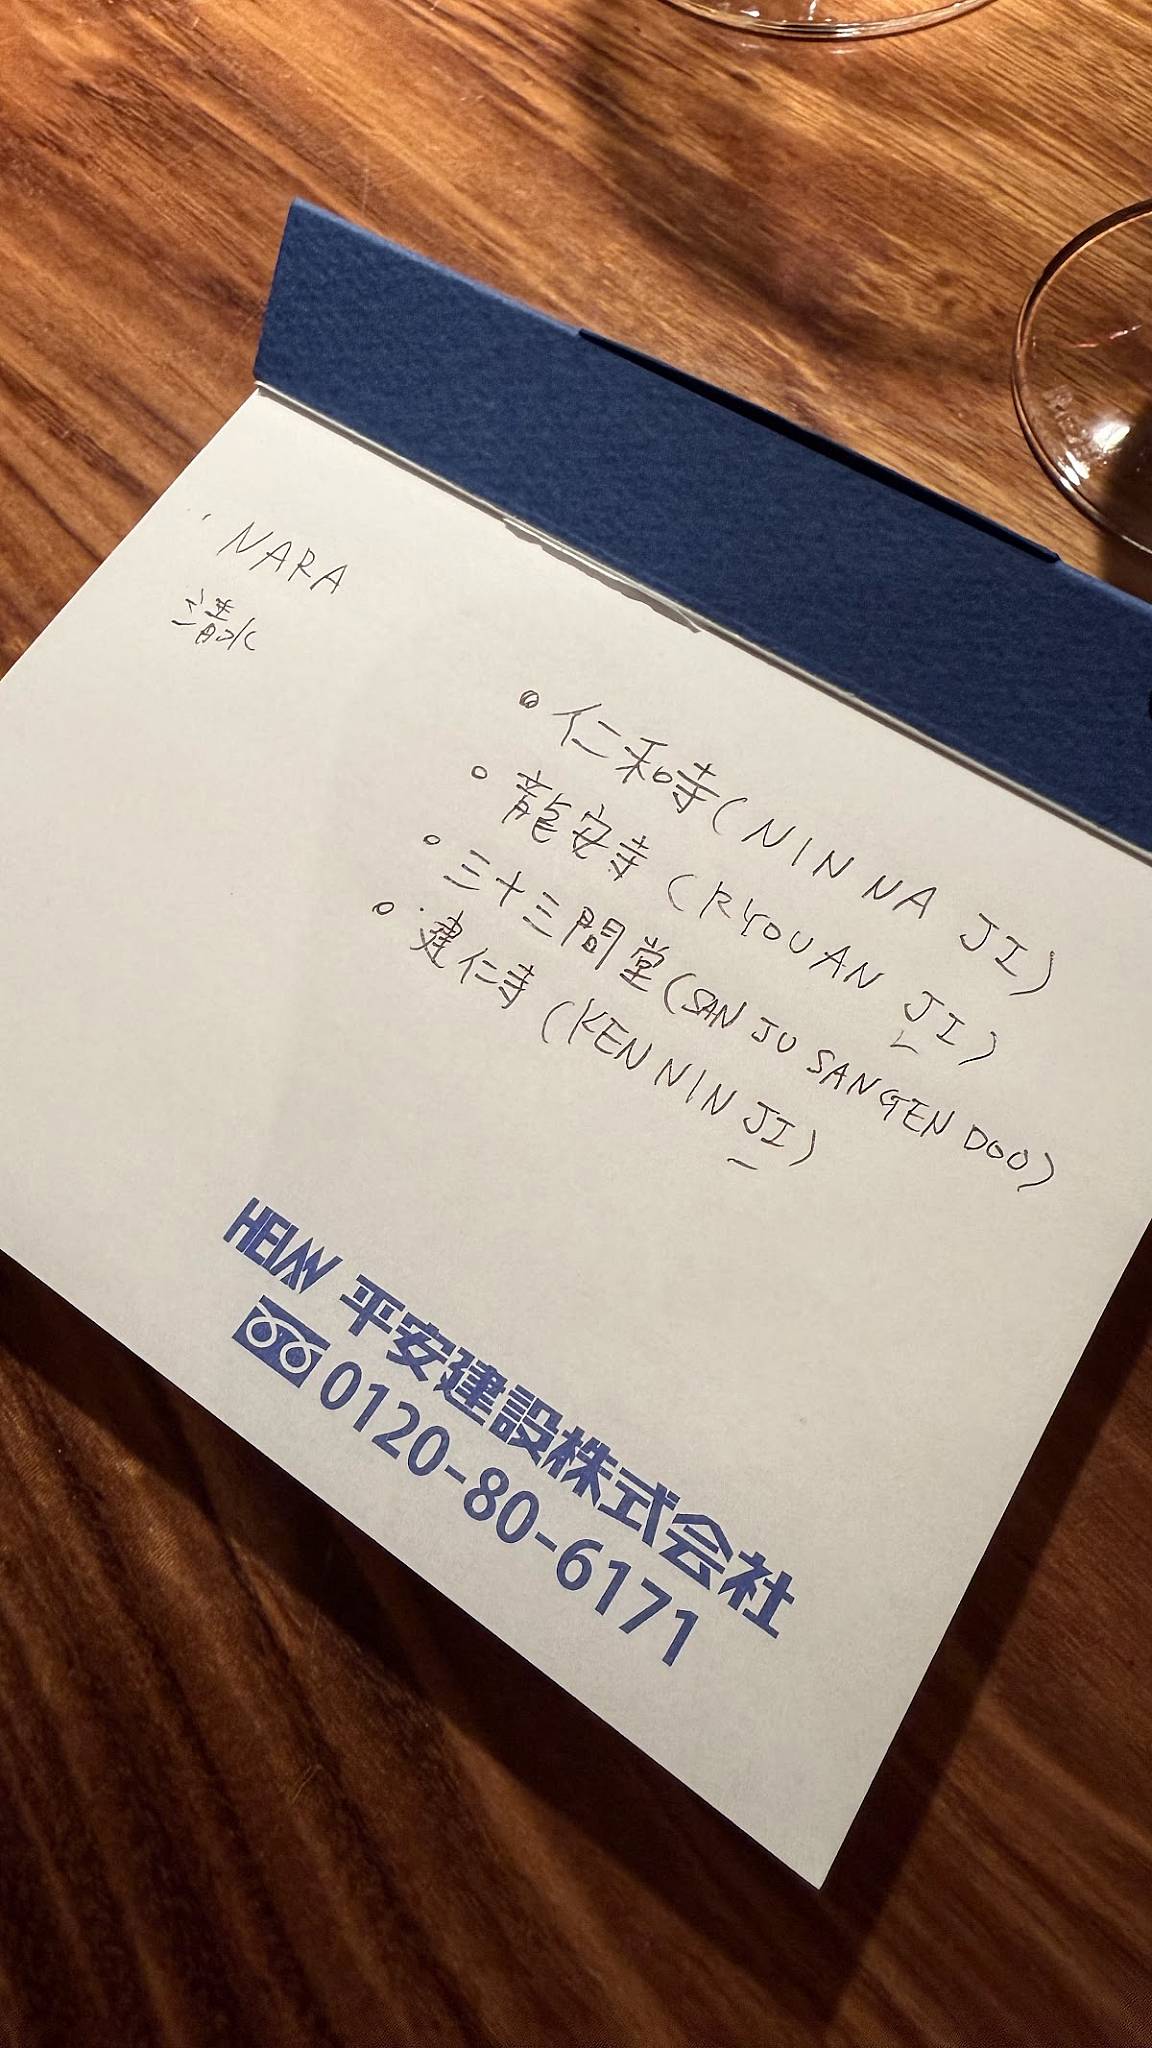 ・NARA
清水
◎仁和寺(NIN NA JI)
○龍安寺(RYOUAN JI)
○三十三間堂(SAN JU SANGEN DOO)
○建仁寺(KEN NIN JI)
HEIAN 平安建設株式会社
0120-80-6171